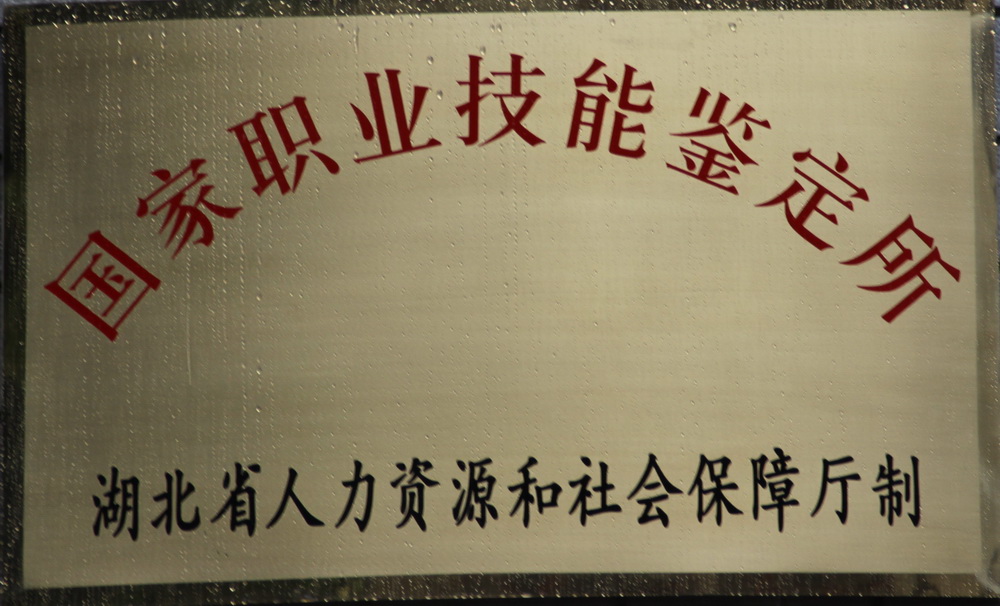 国家职业技能鉴定所
湖北省人力资源和社会保障厅制